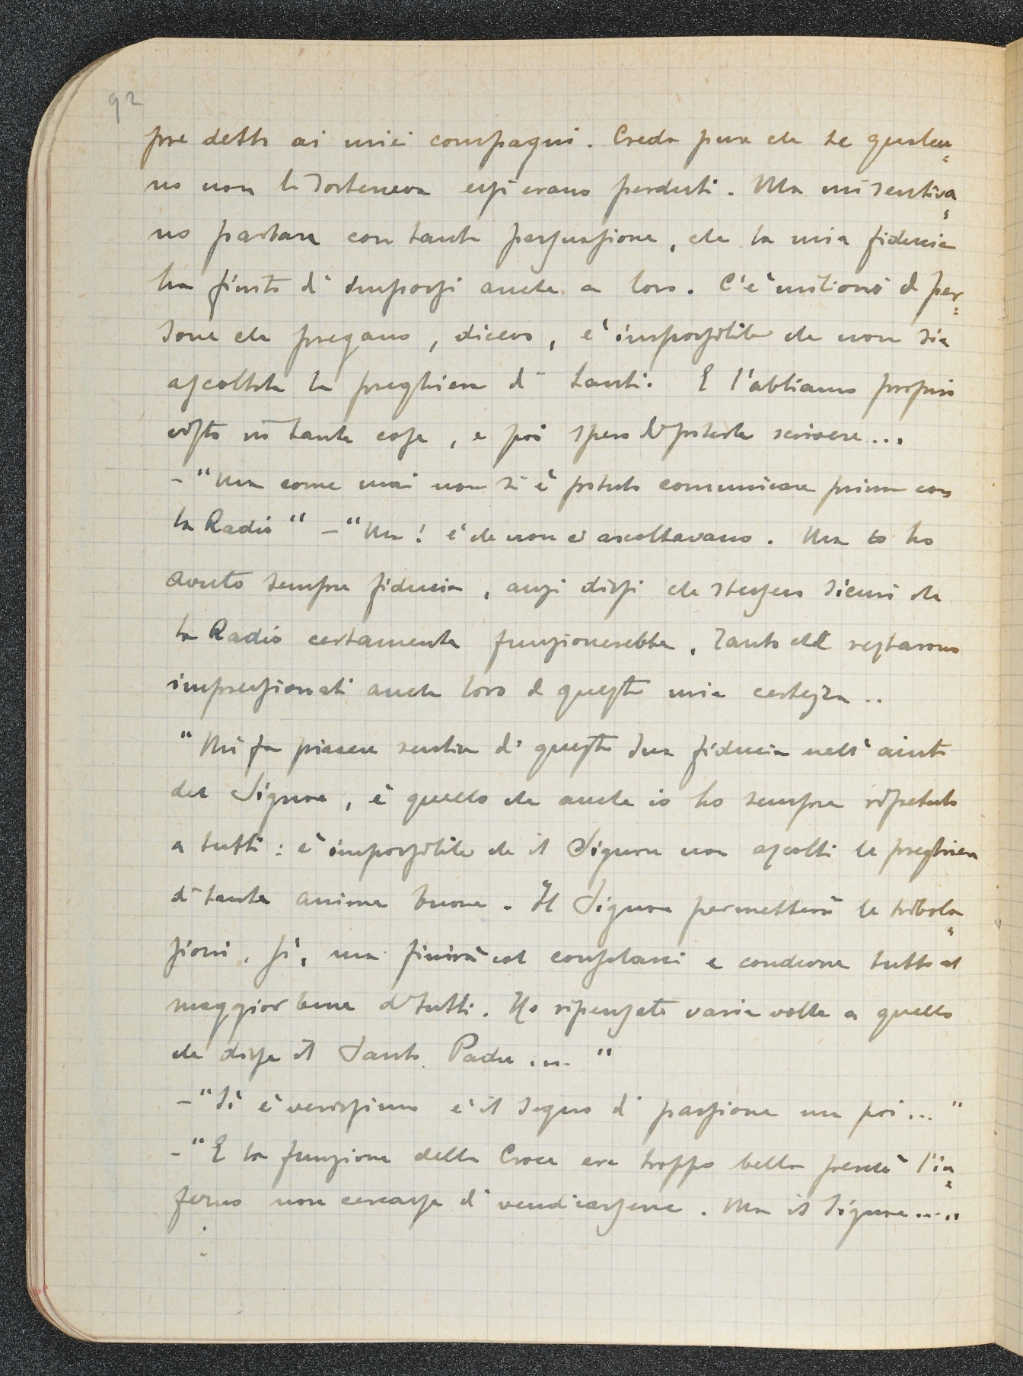 92
pre detto ai miei compagni. Creda pure che se qualcu=
no non li sosteneva essi erano perduti. Ma mi sentiva=
no parlare con tanta persuasione, che la mia fiducia
ha finito di imporsi anche a loro. C'è milioni di per=
sone che pregano, dicevo, è impossibile che non sia
ascoltata la preghiera di tanti. E l'abbiamo proprio
visto in tante cose, e poi spero di poterle scrivere...
-"Ma come mai non si è potuto comunicare prima con
la Radio" -"Ma! è che non ci ascoltavano. Ma io ho
avuto sempre fiducia, anzi dissi che stessero sicuri che
la Radio certamente funzionerebbe. Tanto che restarono
impressionati anche loro di questa mia certezza..
"Mi fa piacere sentire di questa sua fiducia nell'aiuto
del Signore, è quello che anche io ho sempre ripetuto
a tutti: è impossibile che il Signore non ascolti le preghiere
di tante anime buone. Il Signore permetterà le tribola=
zioni, sì, ma finirà col consolarci e condurre tutto al
maggior bene di tutti. Ho ripensato varie volte a quello
che disse il Santo Padre ...."
-"Sì è verissimo è il segno di passione ma poi..."
-"E la funzione della Croce era troppo bella perché l'in=
ferno non cercasse di vendicarsene. Ma il Signore.....